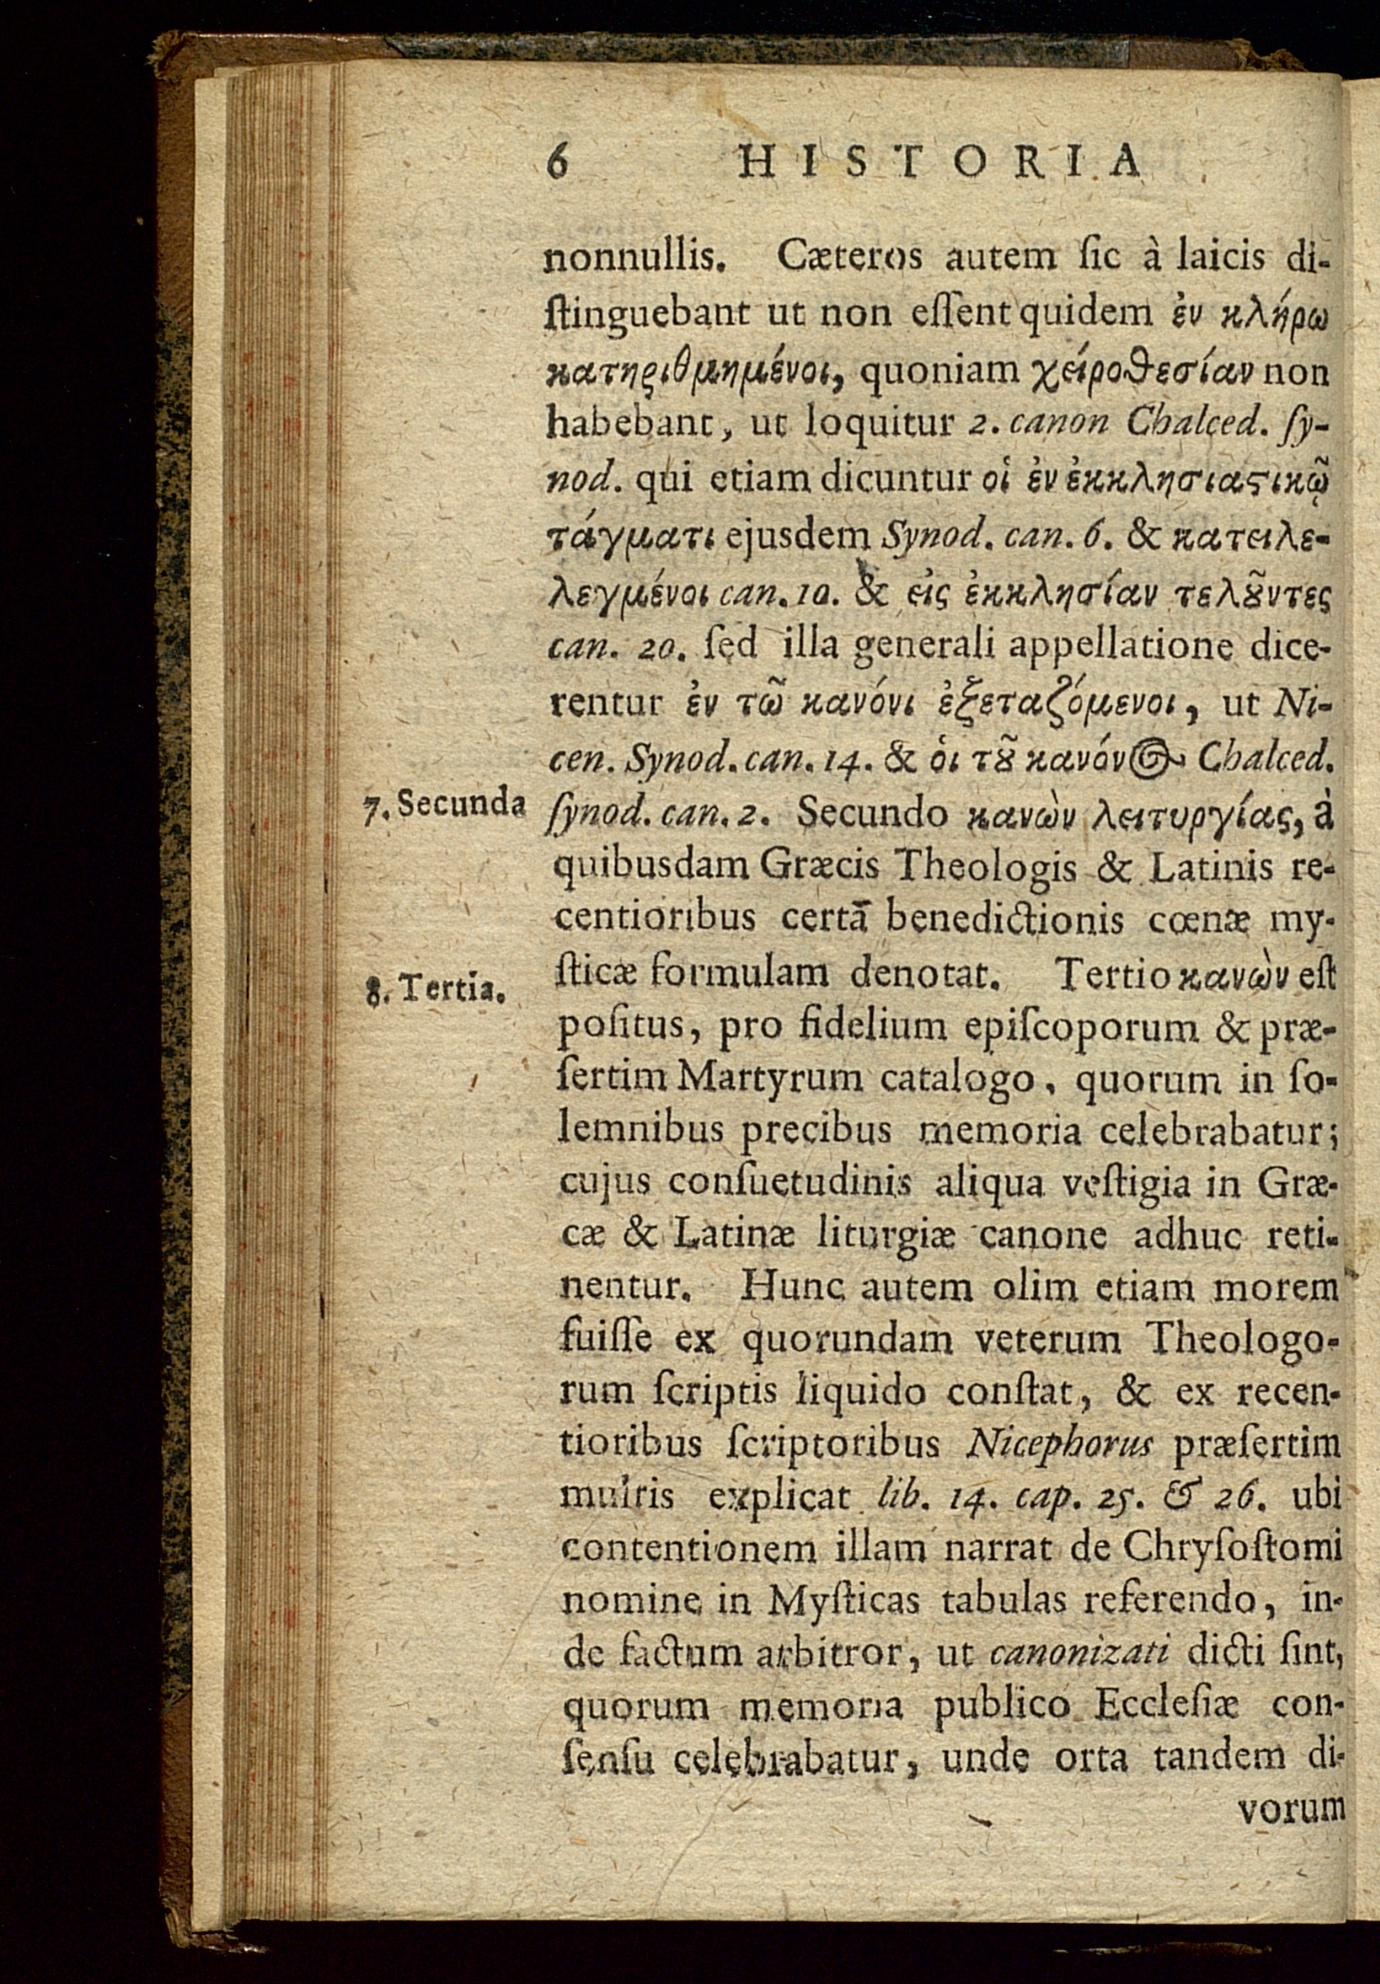 6 HISTORIA
nonnullis. Cæteros autem ſic à laicis di-
ſtinguebant ut non eſſent quidem ἐν κλήρω
κατηριθμημένοι, quoniam χείροθεσίαν non
habebant, ut loquitur 2. canon Chalced. ſy-
nod. qui etiam dicuntur οἱ ἐν ἐκκλησιαϛικῷ
τάγματι ejusdem Synod. can. 6. & κατειλε-
λεγμένοι can. 10. & εἰς ἐκκλησίαν τελȣ͂ντες
can. 20. ſed illa generali appellatione dice-
rentur ἐν τῶ κανόνι ἐξεταζόμενοι, ut Ni-
cen. Synod. can. 14. & ὁι τȣ͂ κανόνος Chalced.
7. Secunda
ſynod. can. 2. Secundo κανὼν λειτυργίας, à
quibusdam Græcis Theologis & Latinis re-
centioribus certā benedictionis cœnæ my-
8. Tertia.
ſticæ formulam denotat. Tertio κανὼν eſt
poſitus, pro fidelium epiſcoporum & præ-
ſertim Martyrum catalogo, quorum in ſo-
lemnibus precibus memoria celebrabatur;
cujus conſuetudinis aliqua veſtigia in Græ-
cæ & Latinæ liturgiæ canone adhuc reti-
nentur. Hunc autem olim etiam morem
fuiſſe ex quorundam veterum Theologo-
rum ſcriptis liquido conſtat, & ex recen-
tioribus ſcriptoribus Nicephorus præſertim
multis explicat lib. 14. cap. 25. & 26. ubi
contentionem illam narrat de Chryſoſtomi
nomine in Myſticas tabulas referendo, in-
de factum arbitror, ut canonizati dicti ſint,
quorum memoria publico Eccleſiæ con-
ſenſu celebrabatur, unde orta tandem di-
vorum